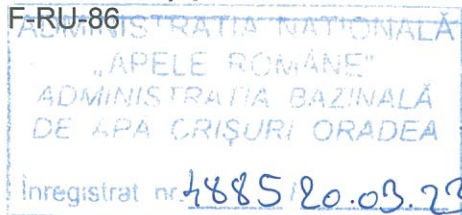 F-RU-86
ADMINISTRAȚIA NAȚIONALĂ
„APELE ROMÂNE"
ADMINISTRAȚIA BAZINALĂ
DE APĂ CRIȘURI ORADEA
Înregistrat nr. 4885/20.03.23